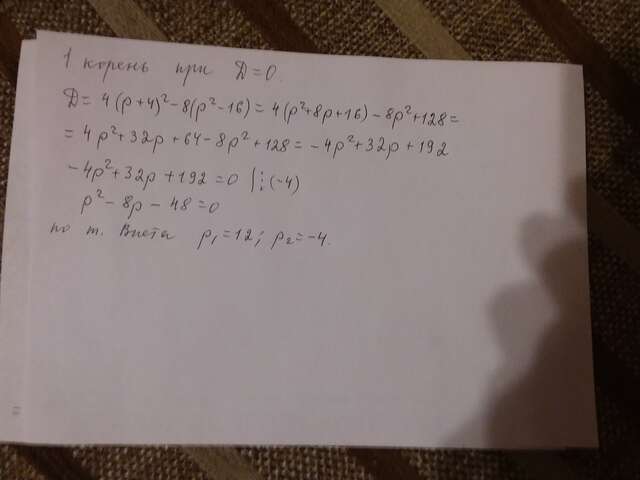 1 корень при D=0.
D= 4(p+4)²-8(p²-16)=4(p²+8p+16)-8p²+128=
=4p²+32p+64-8p²+128=-4p²+32p+192
-4p²+32p+192=0 |:(-4)
p²-8p-48=0
по т. Виета p₁=12; p₂=-4.